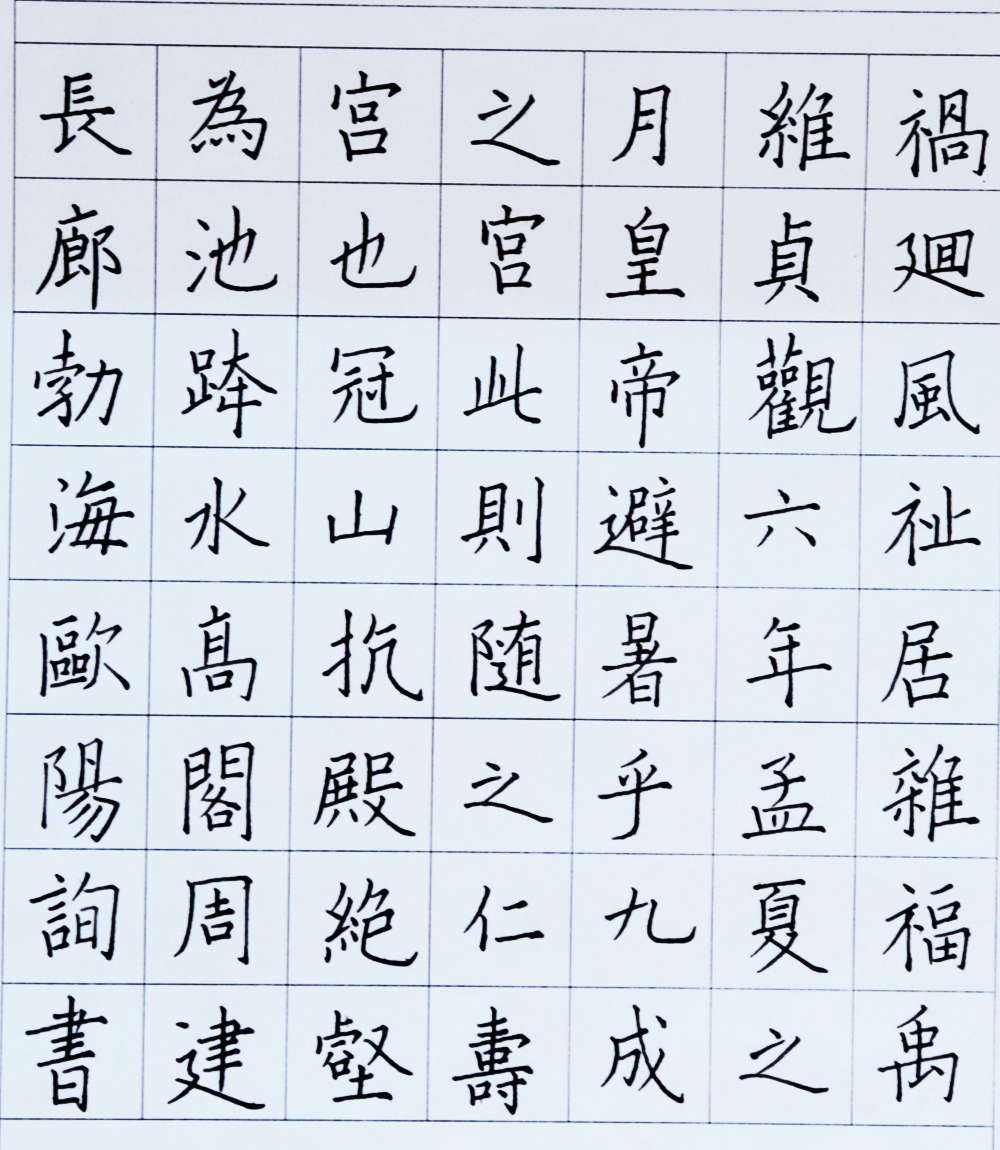 禍廻風祉居雜福禹
維貞觀六年孟夏之
月皇帝避暑乎九成
之宮此則随之仁壽
宮也冠山抗殿絶壑
為池跨水高閣周建
長廊勃海歐陽詢書